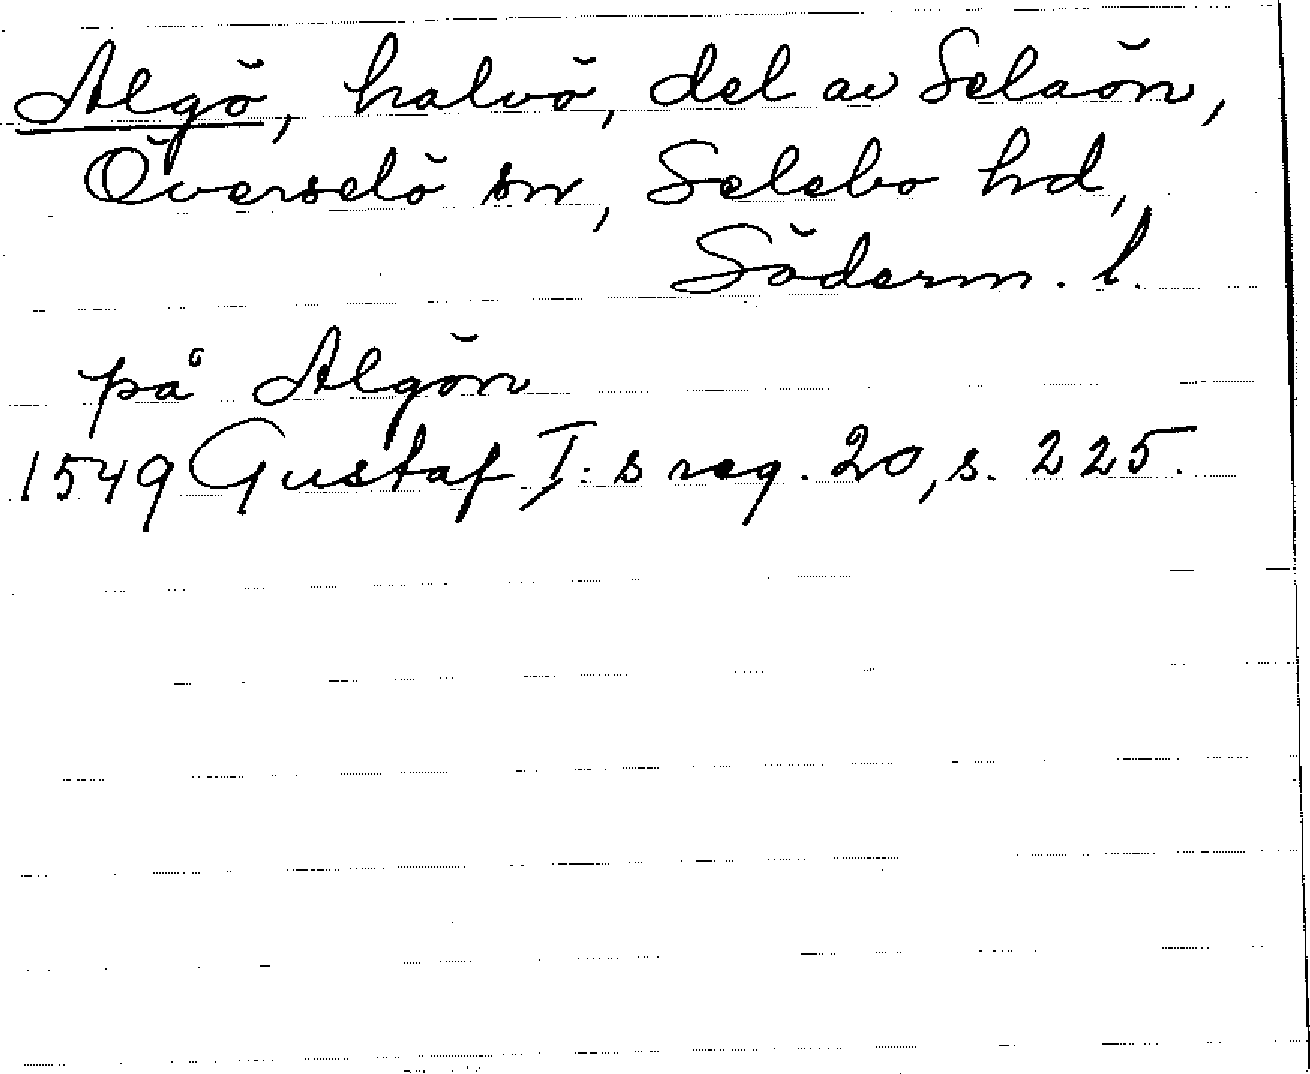 Algö, halvö, del av Selaön,
Överselö sn, Selebo hd,
Söderm. l.
på Algön
1549 Gustaf I:s reg. 20, s. 225.